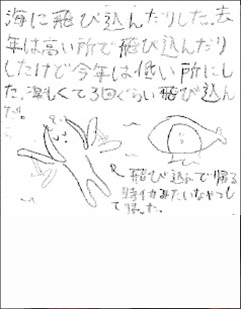 海に飛び込んだりした。去
年は高い所で飛び込んだり
したけど今年は低い所にし
た。楽しくて3回ぐらい飛び込ん
だ。
飛び込んで帰る
時イカみたいなやつし
て帰った。